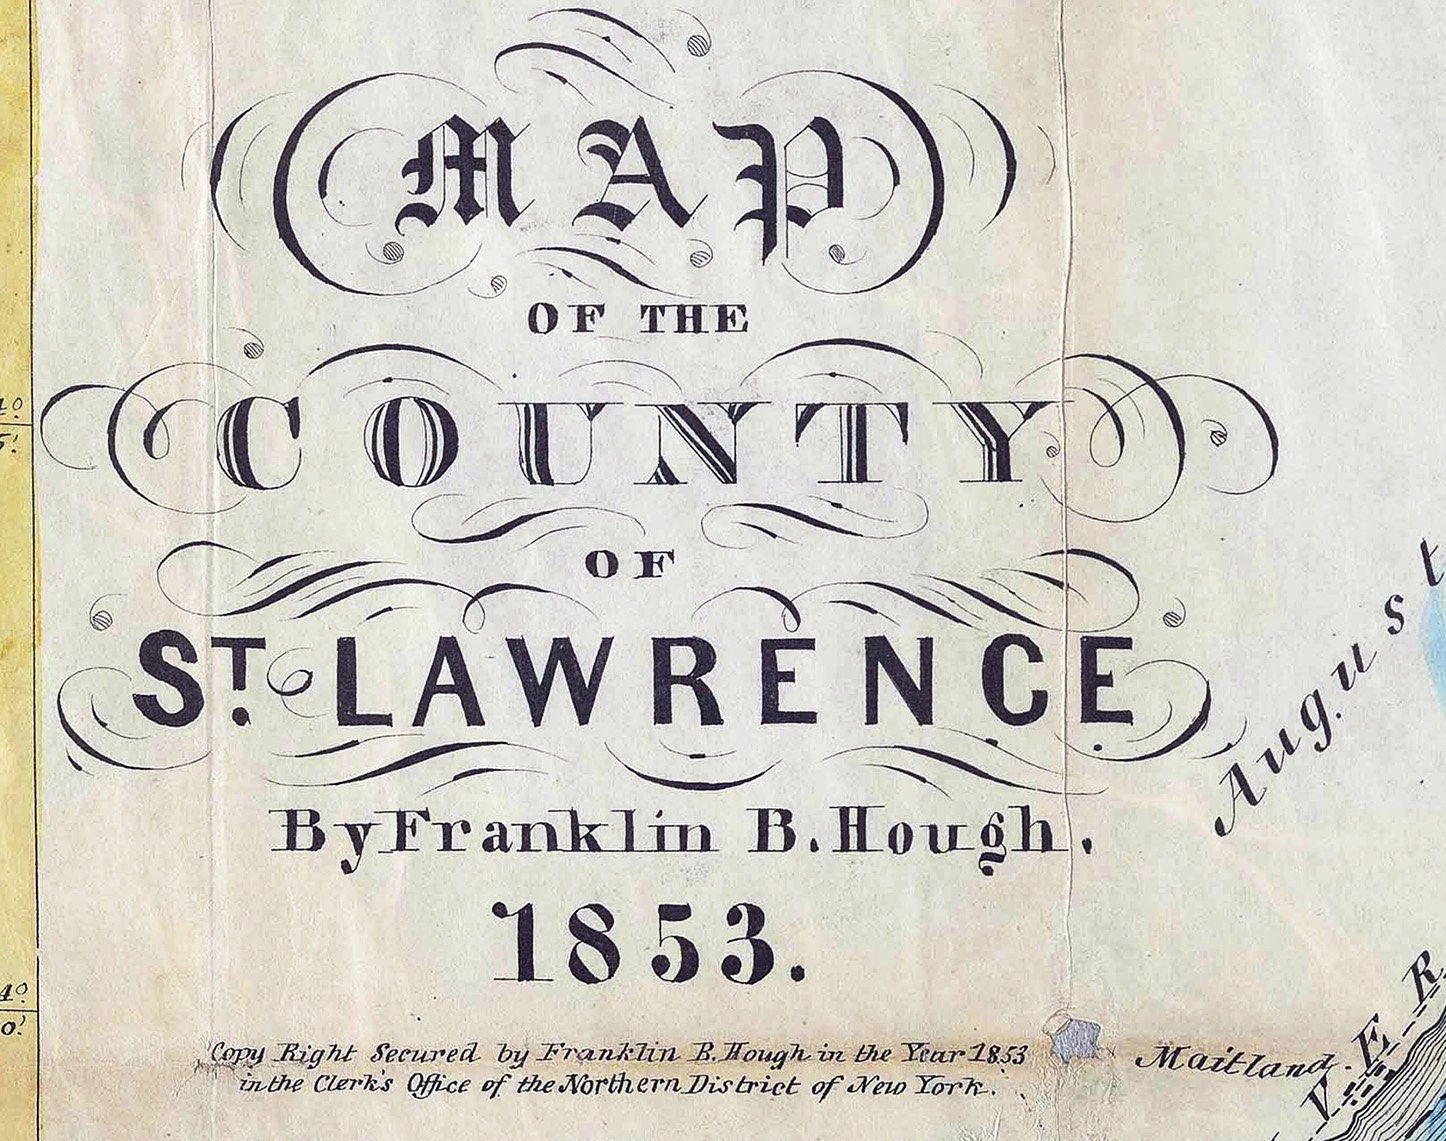 MAP
OF THE
COUNTY
OF
ST. LAWRENCE
By Franklin B. Hough.
1853.
Copy Right Secured by Franklin B. Hough in the Year 1853
in the Clerk's Office of the Northern District of New York.
August
Maitland.
V E R